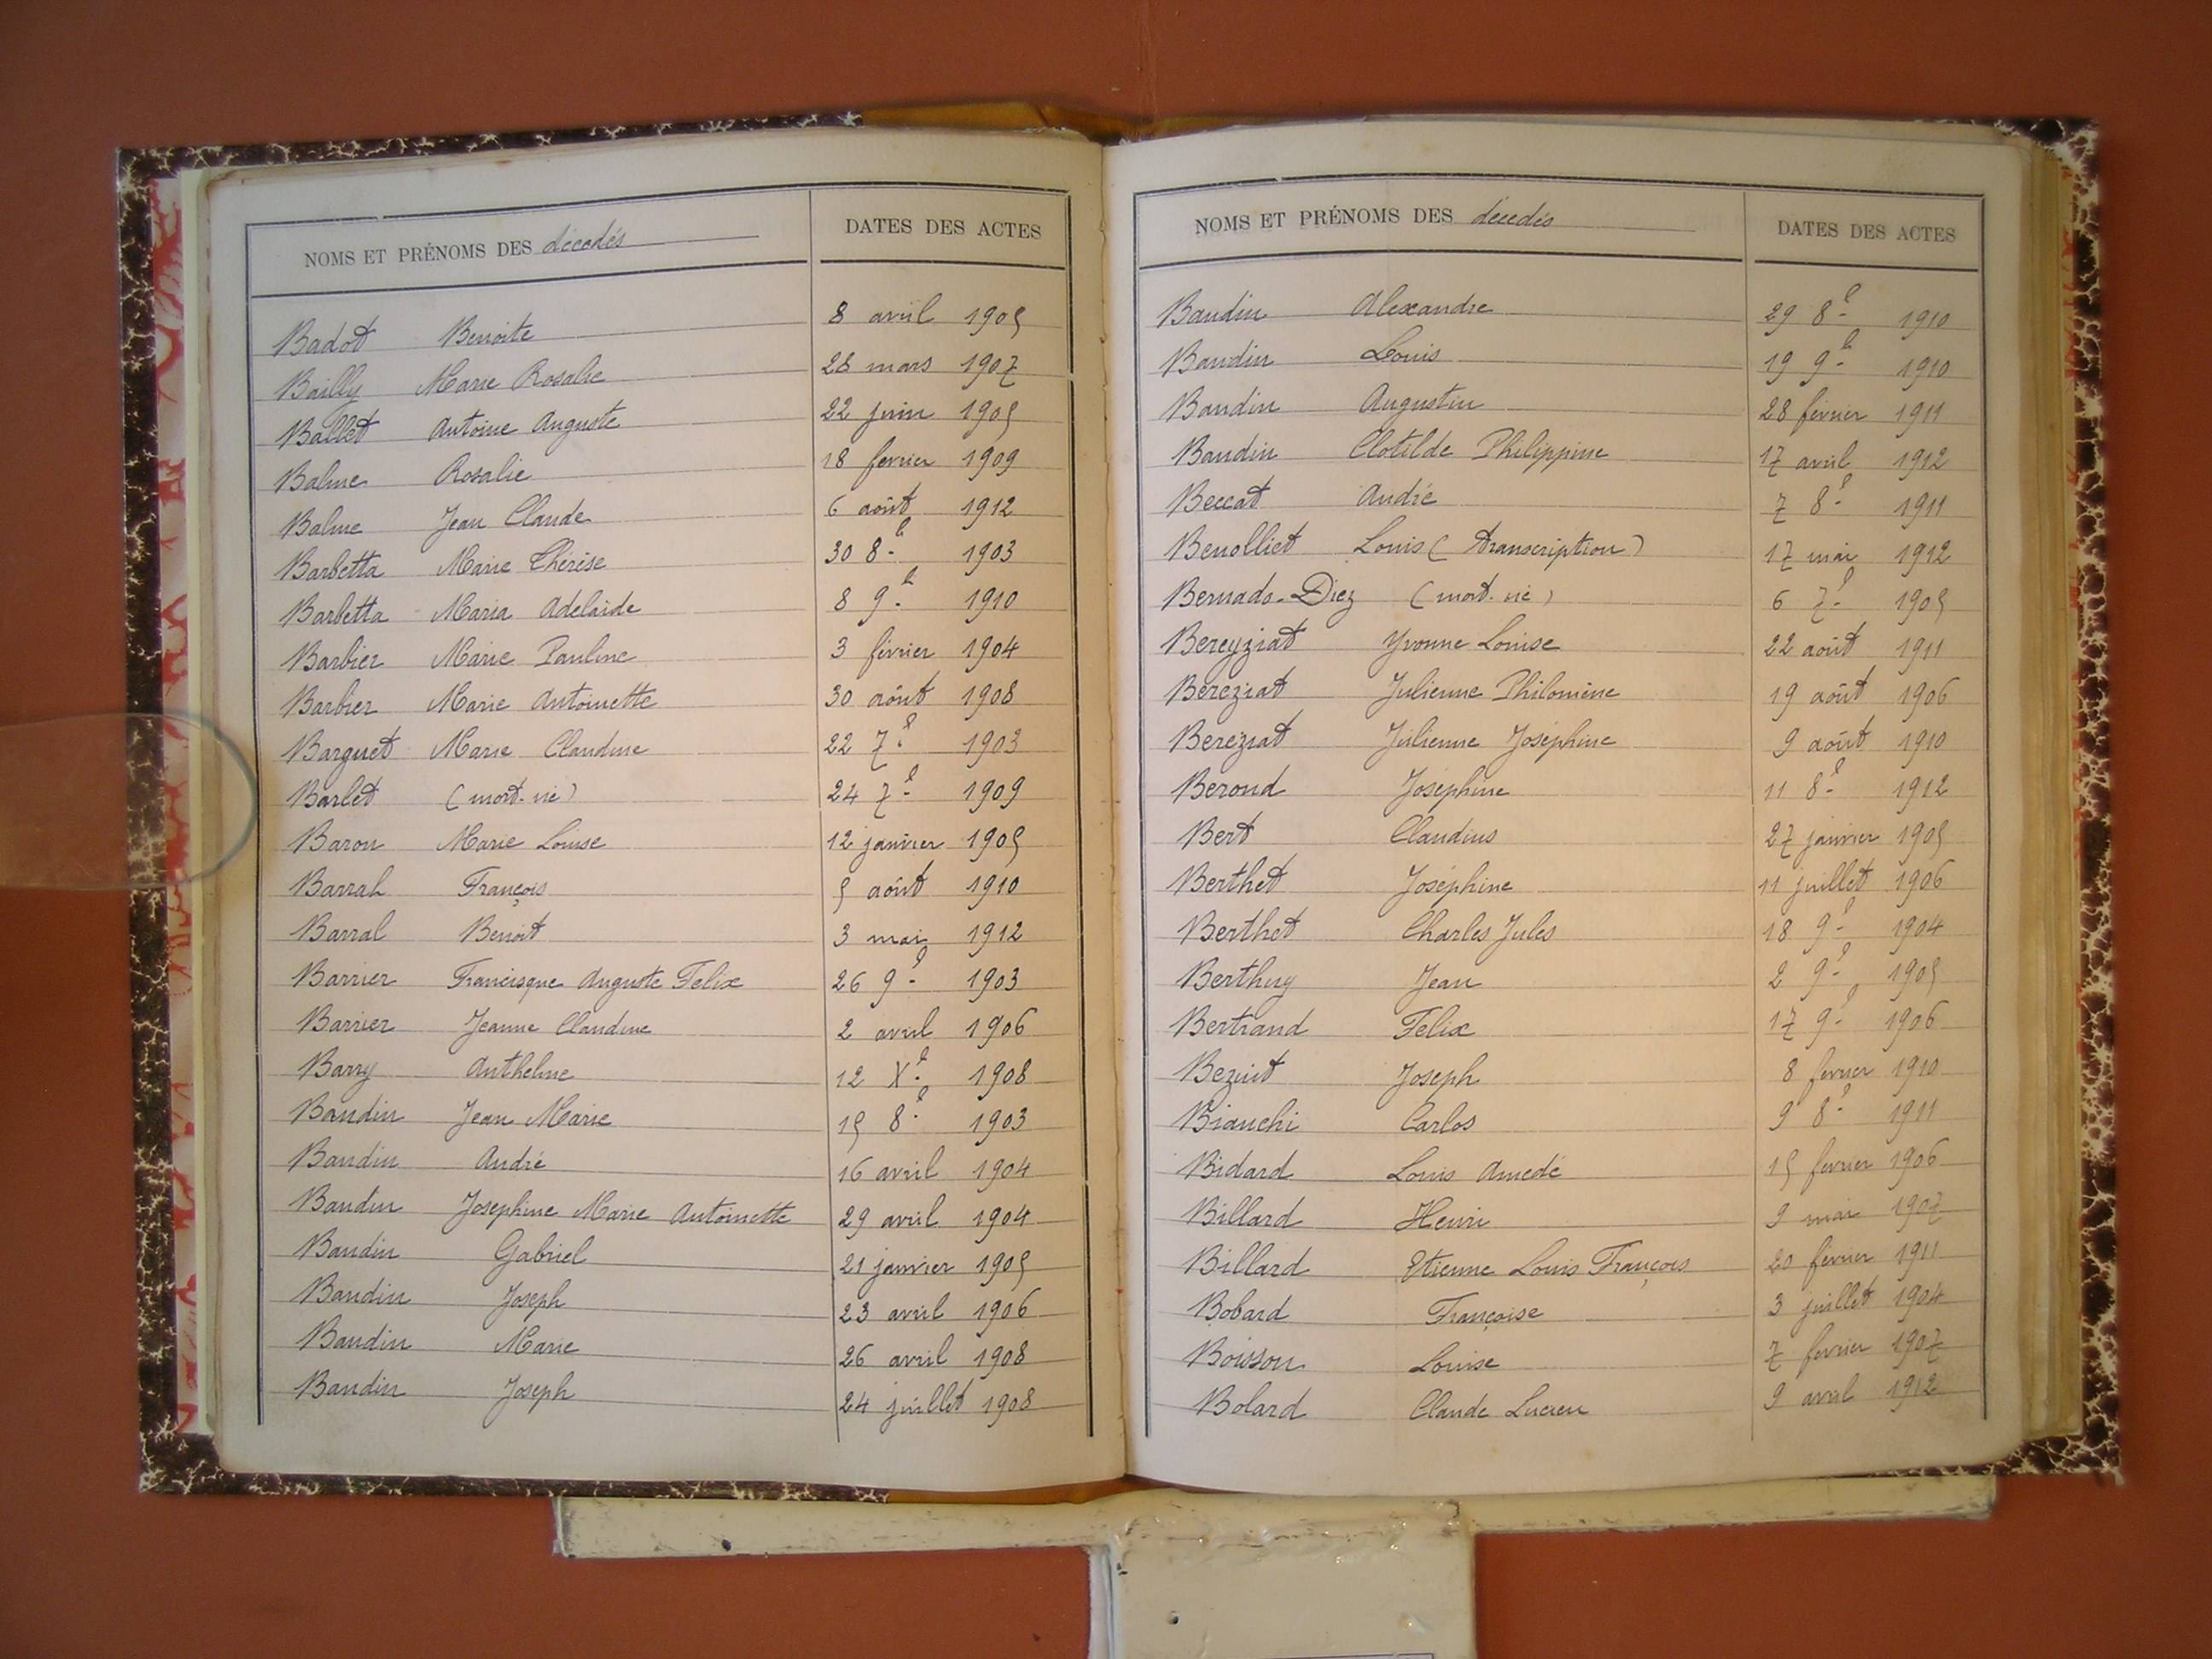 NOMS ET PRÉNOMS DES décédés DATES DES ACTES
Badot Benoite 8 avril 1905
Bailly Marie Rosalie 28 mars 1907
Ballet Antoine Auguste 22 juin 1905
Balme Rosalie 18 fevrier 1909
Balme Jean Claude 6 août 1912
Barbetta Marie Thérèse 30 8e 1903
Barbetta Maria Adelaïde 8 9e 1910
Barbier Marie Pauline 3 février 1904
Barbier Marie Antoinette 30 août 1908
Barguet Marie Claudine 22 7e 1903
Barlet (mort-né) 24 7e 1909
Baron Marie Louise 12 janvier 1905
Barral François 5 août 1910
Barral Benoit 3 mai 1912
Barrier Francisque Auguste Felix 26 9e 1903
Barrier Jeanne Claudine 2 avril 1906
Barry Anthelme 12 Xe 1908
Baudin Jean Marie 15 8e 1903
Baudin André 16 avril 1904
Baudin Josephine Marie Antoinette 29 avril 1904
Baudin Gabriel 21 janvier 1905
Baudin Joseph 23 avril 1906
Baudin Marie 26 avril 1908
Baudin Joseph 24 juillet 1908
NOMS ET PRÉNOMS DES décedés DATES DES ACTES
Baudin Alexandre 29 8e 1910
Baudin Louis 19 9e 1910
Baudin Augustin 28 février 1911
Baudin Clotilde Philippine 17 avril 1912
Beccat André 7 8e 1911
Benolliet Louis (transcription) 17 mai 1912
Bernado-Diez (mort-né) 6 7e 1905
Bereyziat Yvonne Louise 22 août 1911
Béreziat Julienne Philomène 19 août 1906
Bereziat Julienne Joséphine 9 août 1910
Berond Joséphine 11 8e 1912
Bert Claudius 27 janvier 1905
Berthet Joséphine 11 juillet 1906
Berthet Charles Jules 18 9e 1904
Berthuy Jean 2 9e 1905
Bertrand Felix 17 9e 1906
Bezuit Joseph 8 fevrier 1910
Bianchi Carlos 9 8e 1911
Bidard Louis Amedé 15 fevrier 1906
Billard Henri 9 mai 1907
Billard Etienne Louis François 20 février 1911
Bobard Françoise 3 juillet 1904
Boisson Louise 7 fevrier 1907
Bolard Claude Lucien 9 avril 1912